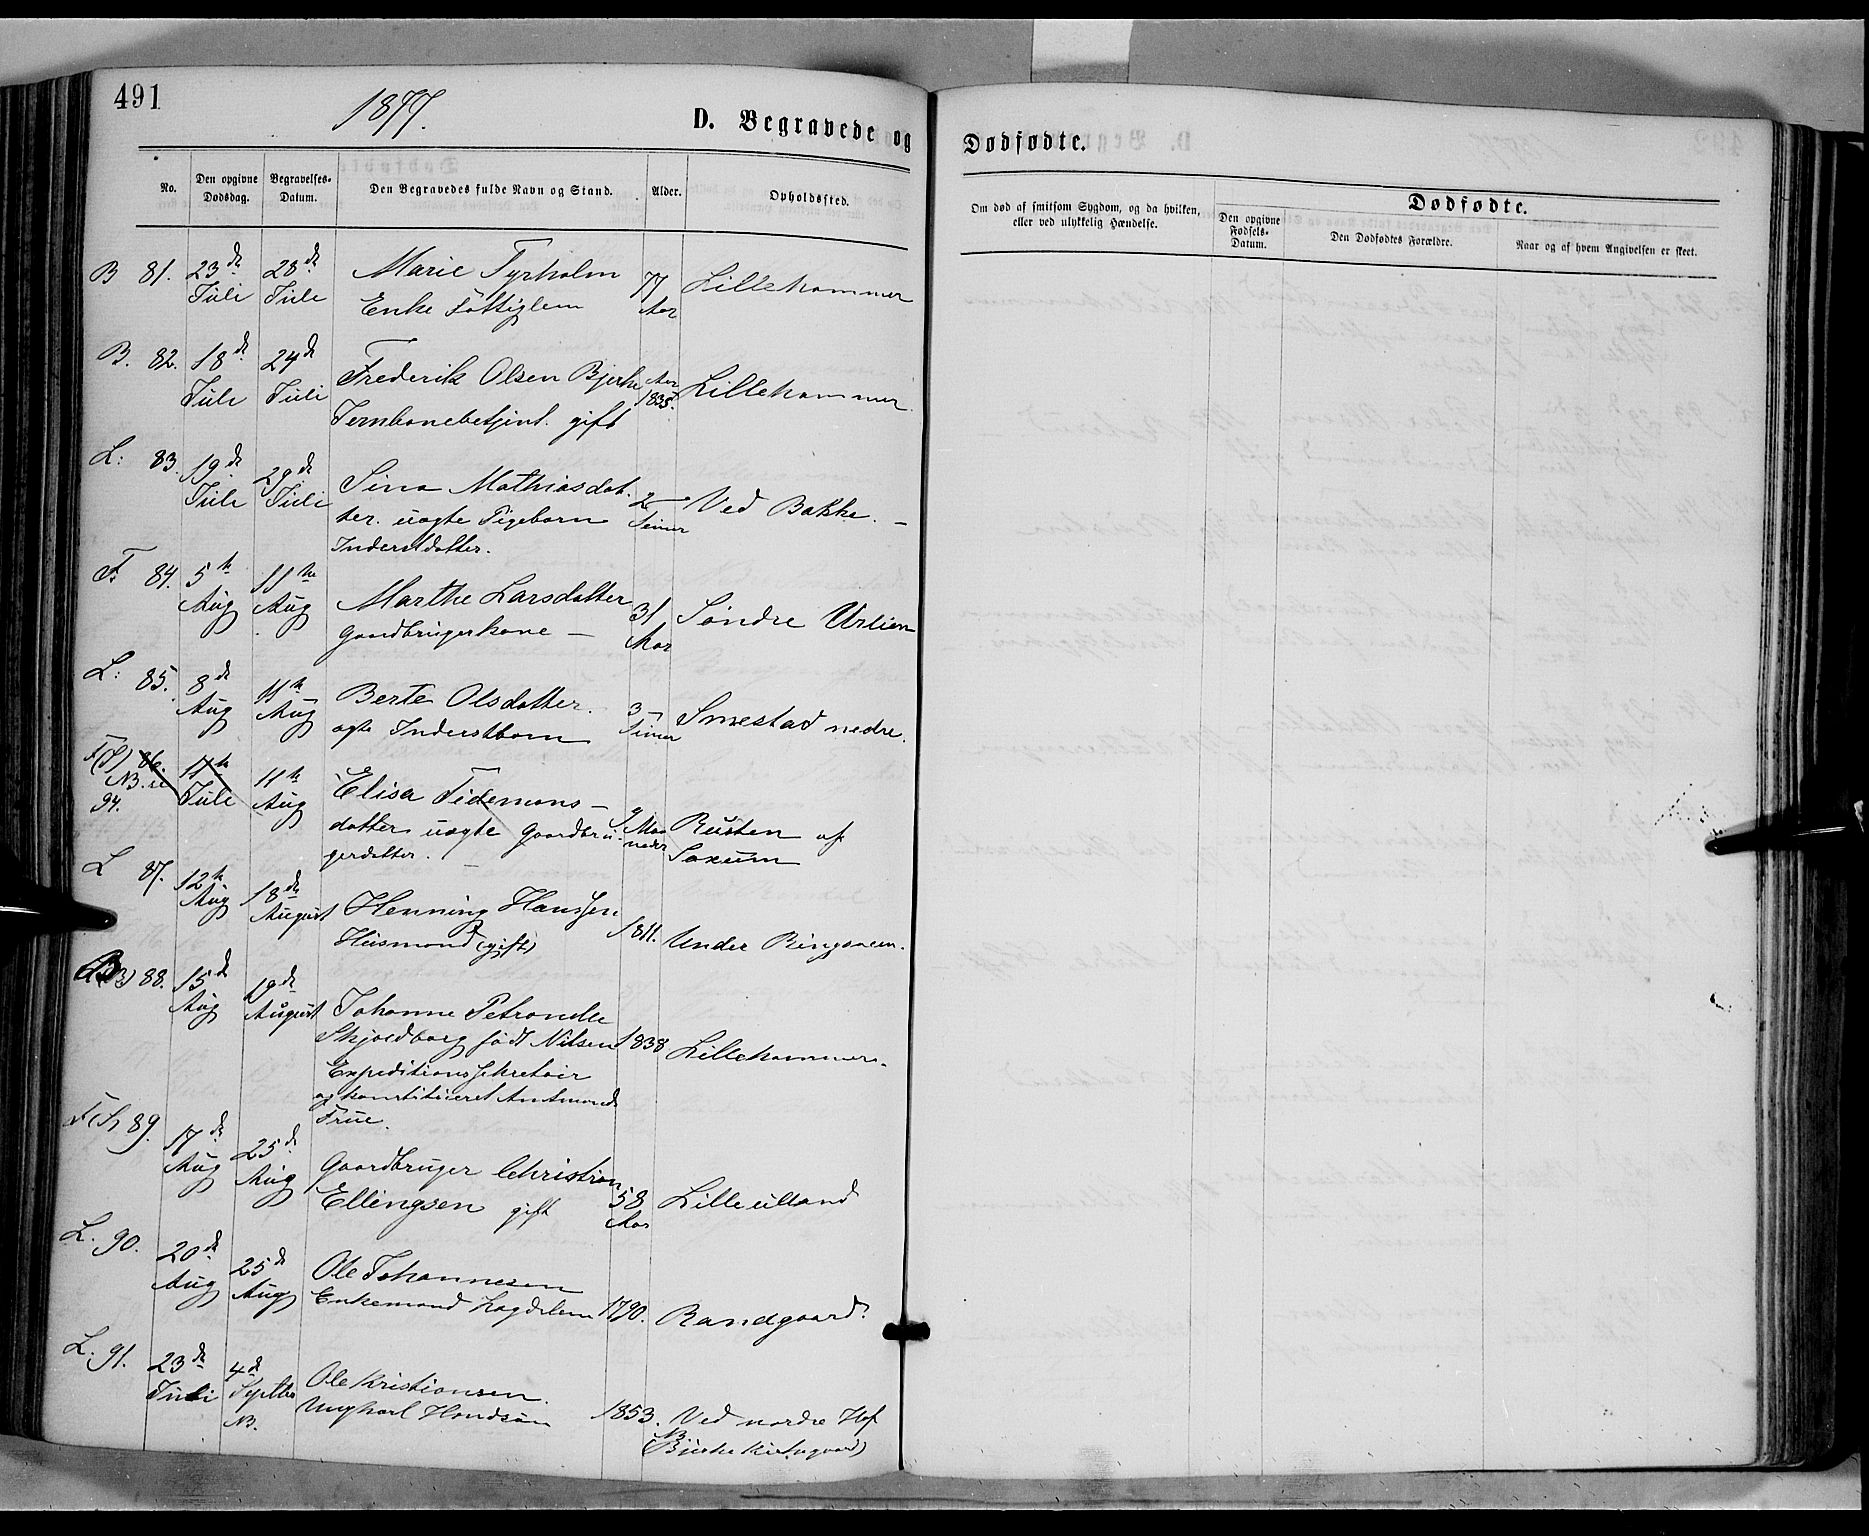 491
1877.
D. Begravede og Dødfødte.
No.
Den opgivne Dødsdag.
Begravelses-Datum.
Den Begravedes fulde Navn og Stand.
Alder.
Opholdssted.
Om død af smitsom Sygdom, og da hvilken, eller ved ulykkelig Hændelse.
Dødfødte.
Den opgivne Fødsels-Datum.
Den Dødfødtes Forældre.
Naar og af hvem Angivelsen er skeet.
B 81. 23de Juli 28de Juli Marie Tyrholm 77 Aar Lillehammer
Enke Fattiglem
B. 82. 18de Juli 24de Juli Frederik Olsen Bjerke Aar 1835. Lillehammer.
Jernbanebetjent. gift
L: 83. 19de Juli 29de Juli Sina Mathiasdat- 2 Timer Ved Bakke. –
ter. uægte Pigebarn
Inderstdatter.
F. 84. 5te Aug 11te Aug Marthe Larsdatter 31 Aar Søndre Urlien
Gaardbrugerkone –
L: 85. 8de Aug 11te Aug Berte Olsdatter. 3 Timer Smestad nedre.
ægte Inderstbarn
F(S) 86. NB. se 94. 11te Juli 11te Aug Elisa Tidemans- 9 Maaneder Rusten af Saxum
datter uægte Gaardbru-
gerdatter. –
L 87. 12te Aug 18de August Henning Hanssen 1811. Under Ringsveen.
Husmand (gift)
B 88. 15de Aug 19de August Johanne Petronelle
Skjoldborg født Nilsen 1838 Lillehammer.
Expeditionssekretair
og konstitueret Amtmands
Frue.
F(S) 89. 17de Aug 25de Aug Gaardbruger Christian
Ellingsen gift 58 Aar Lilleulland
L. 90. 20de Aug 25de Aug Ole Johannesen
Enkemand Lægdslem 1790. Randgaard.
L. 91. 23de Juli 4de Septbr NB. Ole Kristiansen.
Ungkarl Handsøm 1853. Ved nordre Hof
NB (Bjerke Kirkegaard)